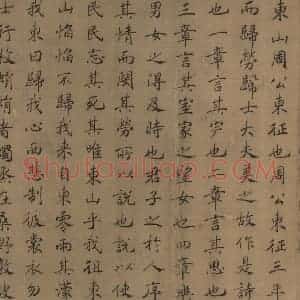 東山周公東征也周公東征三年
而歸勞歸士大夫美之故作是詩
也一章言其完也二章言其思也
三章言其室家之望女也四章樂
男女之得及時也君子之於人序
其情而閔其勞所以說也說以使
民民忘其死其唯東山乎我徂東
山慆慆不歸我來自東零雨其濛
我東曰歸我心西悲制彼裳衣勿
士行枚蜎蜎者蠋烝在桑野敦彼
Shufaziliao.com